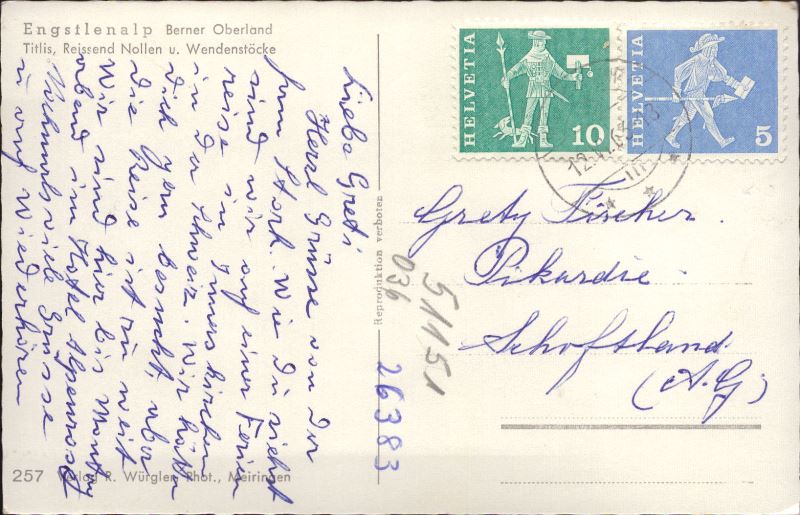 Engstlenalp Berner Oberland
Titlis, Reissend Nollen u. Wendenstöcke
HELVETIA
10
HELVETIA
5
Liebe Greti
Herzl Grüsse von Der
frau Stork. Wie Du siehst
sind wir auf einer Ferien
reise in
in der Schweiz. Wir hätten
dich gern besucht, aber
die Reise ist zu weit
Wir sind hier bis Montag
abend im Hotel Alpenrose
Nochmals viele Grüsse
u auf Wiederhören
Reproduktion verboten
51151
036
26383
Grety Fischer
Pikardie
Schoftland
(A.G)
257 Verlag R. Würgler, Phot., Meiringen